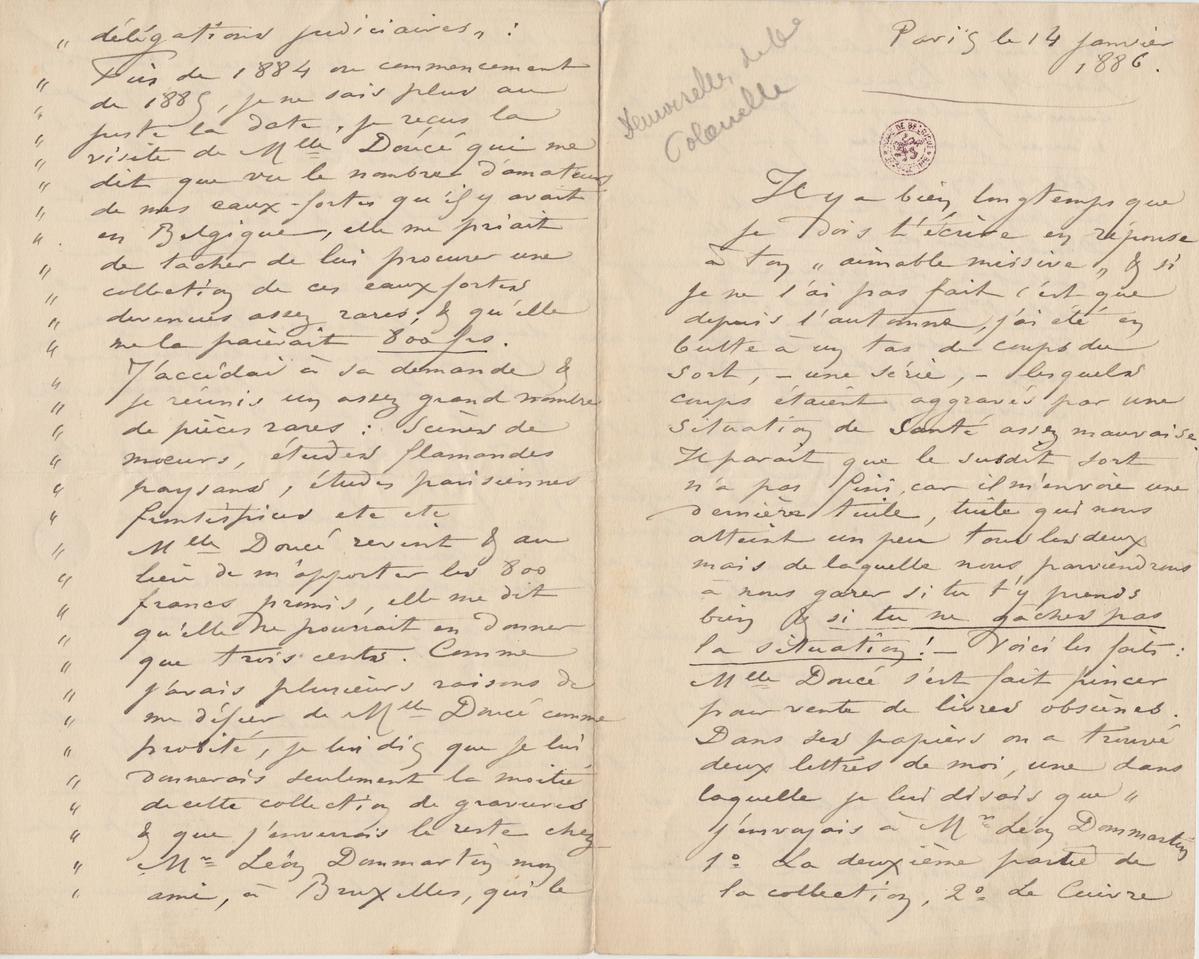 Paris le 14 janvier
1886.
Demoiselles de la
Il y a bien longtemps que
je dois t'écrire en réponse
à ton „ aimable missive „ & si
je ne l'ai pas fait c'est que
depuis l'automne, j'ai été en
butte à un tas de coups du
sort, – une série, – lesquels
coups étaient aggravés par une
situation de santé assez mauvaise.
Il parait que le susdit sort
n'a pas fini, car il m'envoie une
dernière tuile, tuile qui nous
atteint un peu tous les deux
mais de laquelle nous parviendrons
à nous garer si tu t'y prends
bien & si tu ne gâches pas
la situation! – Voici les faits:
Mlle Doucé s'est fait pincer
pour vente de livres obscènes.
Dans ses papiers on a trouvé
deux lettres de moi, une dans
laquelle je lui disais que „
j'envoyais à Mr Léon Dommartin
1º La deuxième partie de
la collection, 2º Le Cuivre
„ délégations judiciaires„ :
„ Fin de 1884 ou commencement
„ de 1885, je ne sais plus au
„ juste la date, je reçus la
„ visite de Mlle Doucé qui me
„ dit que vu le nombre d'amateurs
„ de mes eaux-fortes qu'il y avait
„ en Belgique, elle me priait
„ de tacher de lui procurer une
„ collection de ces eaux fortes
„ devenues assez rares, & qu'elle
„ me la paierait 800 frs.
„ J'accédai à sa demande &
„ je réunis un assez grand nombre
„ de pièces rares : Scènes de
„ mœurs, études flamandes
„ paysans, études parisiennes
„ frontispices etc etc
„ Mlle Doucé revint & au
„ lieu de m'apporter les 800
„ francs promis, elle me dit
„ qu'elle ne pourrait en donner
„ que trois cents. Comme
„ j'avais plusieurs raisons de
„ me défier de Mlle Doucé comme
„ probité, je lui dis que je lui
„ donnerais seulement la moitié
„ de cette collection de gravures
„ & que j'enverrais le reste chez
„ Mr Léon Dommartin mon
„ ami, à Bruxelles, qui le